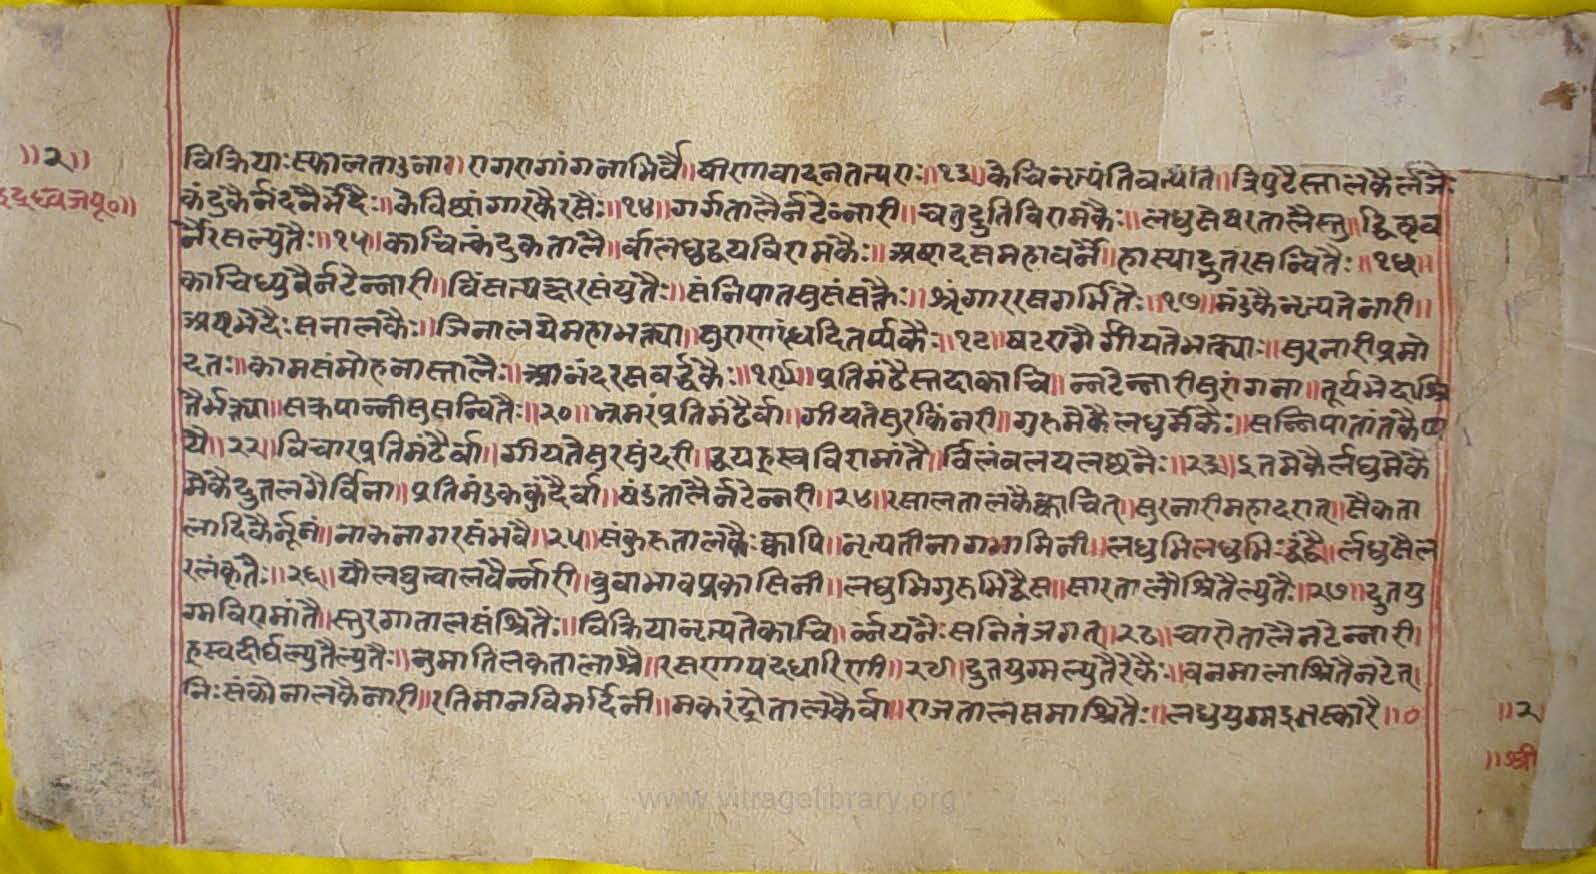 ॥२॥
विक्रियाः स्फालताडनाः॥ रागरागांगनाभिर्वै॥ वीणावादनतत्पराः॥१३॥ केचिन्नृत्यंतिवत्यंति॥ त्रिपुटैस्तालकैर्लजैः
कंदुकैर्नदनैर्भेदैः॥ केविष्टांगारकैरसैः॥१४॥ गर्गतालैर्नटेन्नारी॥ चतुद्रुतिविरामकैः॥ लघुसेषरतालैस्तु॥ द्विष्टव
र्नैरसल्युतैः॥१५॥ काचित्कंदुकतालै॥ र्वालघुद्वयविरामकैः॥ अष्टादसमहावर्नै॥ हास्याद्भुतरसन्वितैः॥१६॥
काचिध्युवैर्नटेन्नारी॥ विंसत्यक्षरसंयुतैः॥ संनिपातसुसंसक्तैः॥ श्रृंगाररसगर्भितैः॥१७॥ मंडकैनृत्यतेनारी॥
अष्टभेदैः सतालकैः॥ जिनालयेमहाभक्त्या॥ सुराणां हृदितर्प्यकैः॥१८॥ षटरागै र्गीयतेभक्त्याः॥ सुरनारीप्रमो
दतः॥ कामसंमोहनास्तालैः॥ आनंदरसवर्द्धकैः॥१९॥ प्रतिमंठैस्तदाकाचि॥ न्नटेन्नारीसुरांगना॥ तूर्यभेदाश्रि
तैर्भक्त्या॥ सकपान्नीसुसन्वितैः॥२०॥ भ्रमरंप्रतिमंठैर्वा॥ गीयतेसुरकिंनरी॥ गुरुमेकैलघुर्मेकैः॥ सन्निपातांतकैष्प
यै॥२२॥ विचारप्रतिमंठैर्वा॥ गीयतेसुरसुंदरी॥ द्वयह्रस्वविरामांतै॥ र्विलंबलयलक्षनैः॥२३॥ द्रुतमेकैर्लघुमेकै
मेकैद्रुतलगैर्विना॥ प्रतिमंडककुंदैर्वा॥ षंडतालैर्नटेन्नरी॥२४॥ रसालतालकैक्वाचित्॥ सुरनारीमहादरात्॥ सैकता
लादिकैर्नूनं॥ नाकनागरसंभवै॥२५॥ संकुरुतालकैः क्वापि॥ नृत्यतीनागभामिनी॥ लघुभिलघुभिः द्वंद्वै॥ र्लघुसैल
रलंकृतैः॥२६॥ यौलघुत्वालवैर्न्नारी॥ ध्रुवाभावप्रकासिनी॥ लघुभिगुरुभिद्वैस॥ सारतालौश्रितैल्युतैः॥२७॥ द्रुतयु
ग्मविरामांतै॥ स्तुरगातालसंश्रितैः॥ विक्रियानृत्यतेकाचि॥ र्न्नयनैः सनितंजगत्॥२८॥ चारौतालैनटेन्नारी।
ह्रस्वदीर्घल्युतैल्युतैः॥ नुमातिलकतालाश्रै॥ रसरायपदधारिणी॥२९॥ द्रुतयुग्मल्युतैरेकैः॥ वनमालाश्रितैनटेत्।
निःसंकौनालकैनारी॥ रतिमानविमर्दिनी॥ मकरंद्रोतालकैर्वा॥ राजतालसमाश्रितैः॥ लघुयुग्मद्रुतस्कारै॥०
॥२
॥श्री
www.vitragelibrary.org